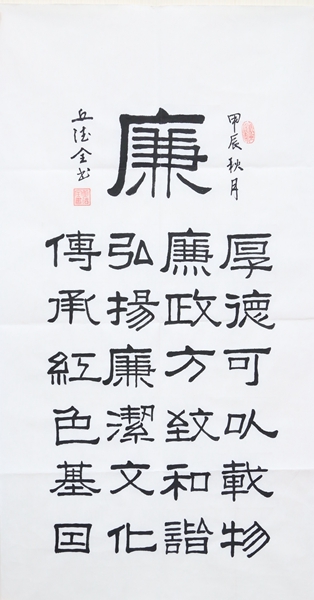 廉
甲辰秋月
厚德可以載物
廉政方致和諧
弘揚廉潔文化
傳承紅色基因
丘德全书